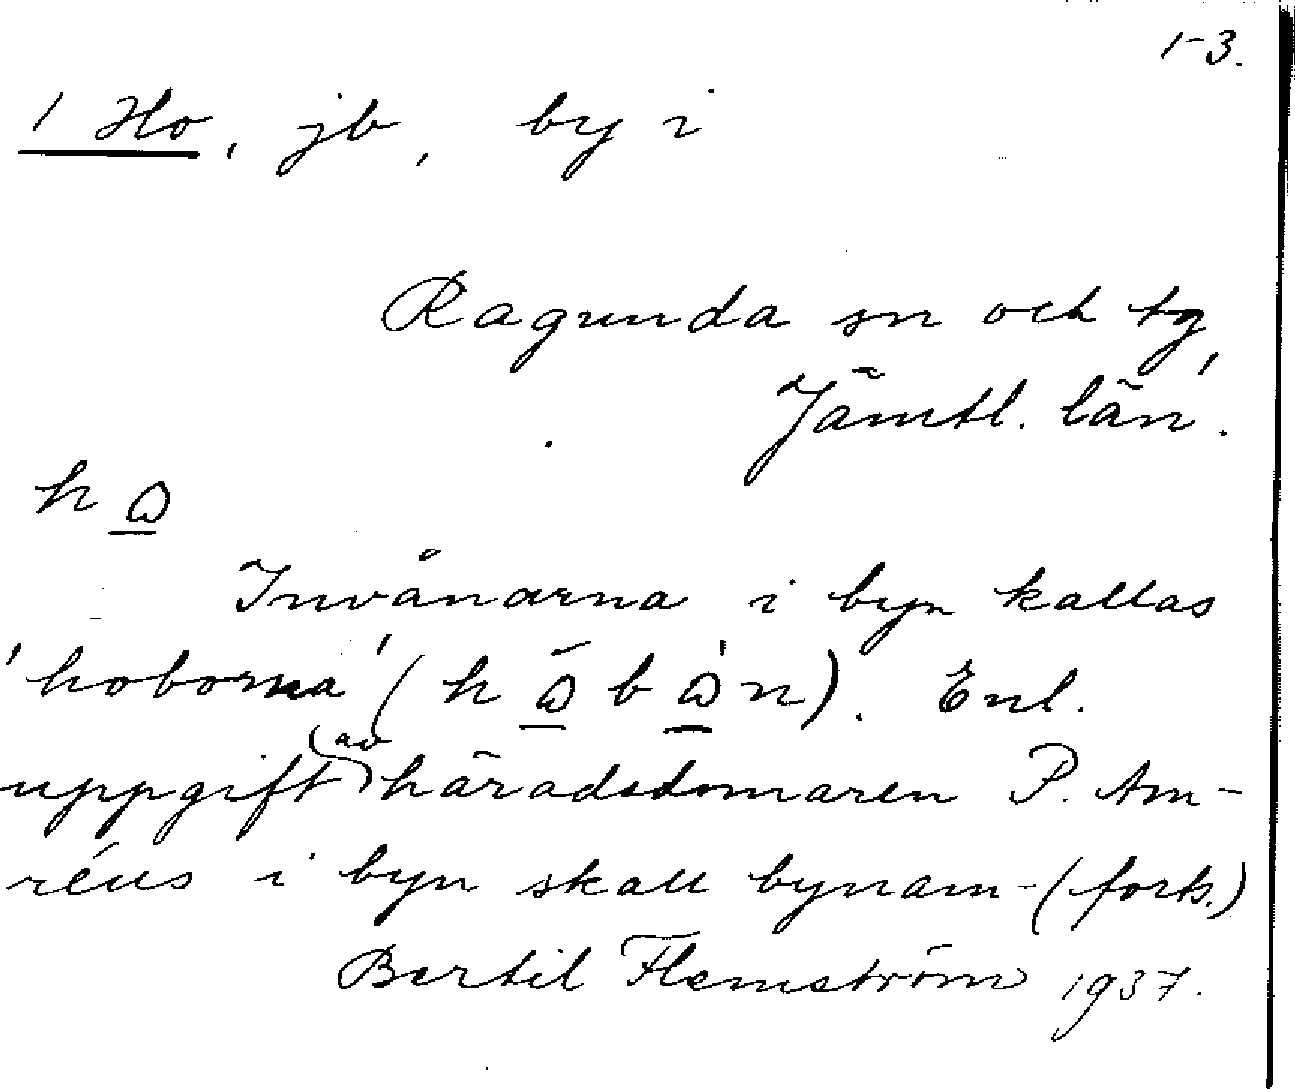 1-3.
1 Ho, jb, by i
Ragunda sn och tg,
Jämtl. län.
h
Invånarna i byn kallas
'hoborna' ( h b n). Enl.
uppgift av häradsdomaren P. Am-
réus i byn skall bynam- (forts.)
Bertil Flemström 1937.